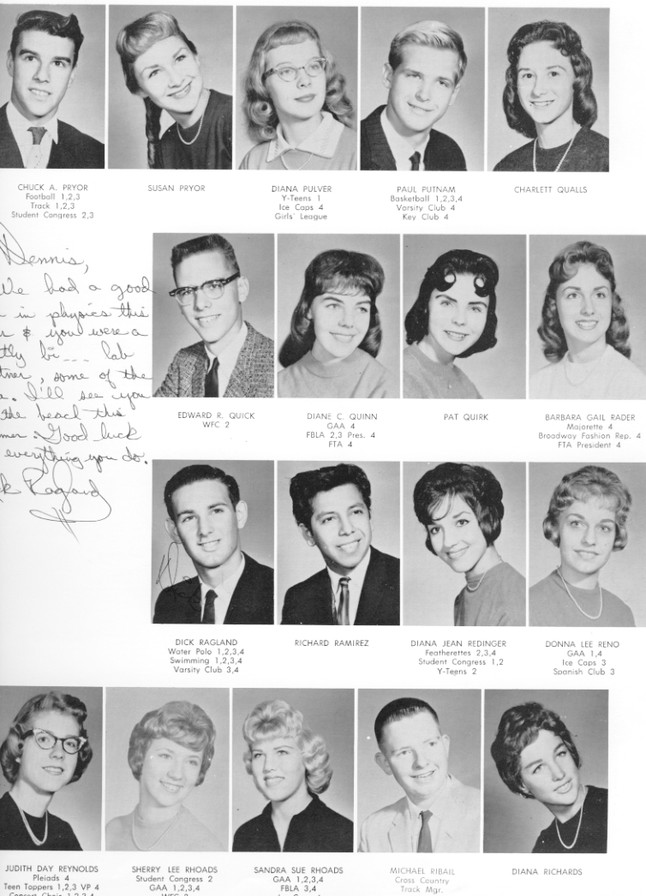 CHUCK A. PRYOR
Football 1,2,3
Track 1,2,3
Student Congress 2,3
SUSAN PRYOR
DIANA PULVER
Y-Teens 1
Ice Caps 4
Girls' League
PAUL PUTNAM
Basketball 1,2,3,4
Varsity Club 4
Key Club 4
CHARLETT QUALLS
Dennis,
We had a good
in physics this
& you were a
lab
some of the
I'll see you
the beach this
Good luck
everything you do.
Ragland
EDWARD R. QUICK
WFC 2
DIANE C. QUINN
GAA 4
FBLA 2,3 Pres. 4
FTA 4
PAT QUIRK
BARBARA GAIL RADER
Majorette 4
Broadway Fashion Rep. 4
FTA President 4
DICK RAGLAND
Water Polo 1,2,3,4
Swimming 1,2,3,4
Varsity Club 3,4
RICHARD RAMIREZ
DIANA JEAN REDINGER
Featherettes 2,3,4
Student Congress 1,2
Y-Teens 2
DONNA LEE RENO
GAA 1,4
Ice Caps 3
Spanish Club 3
JUDITH DAY REYNOLDS
Pleiads 4
Teen Toppers 1,2,3 VP 4
SHERRY LEE RHOADS
Student Congress 2
GAA 1,2,3,4
SANDRA SUE RHOADS
GAA 1,2,3,4
FBLA 3,4
MICHAEL RIBAIL
Cross Country
Track Mgr.
DIANA RICHARDS